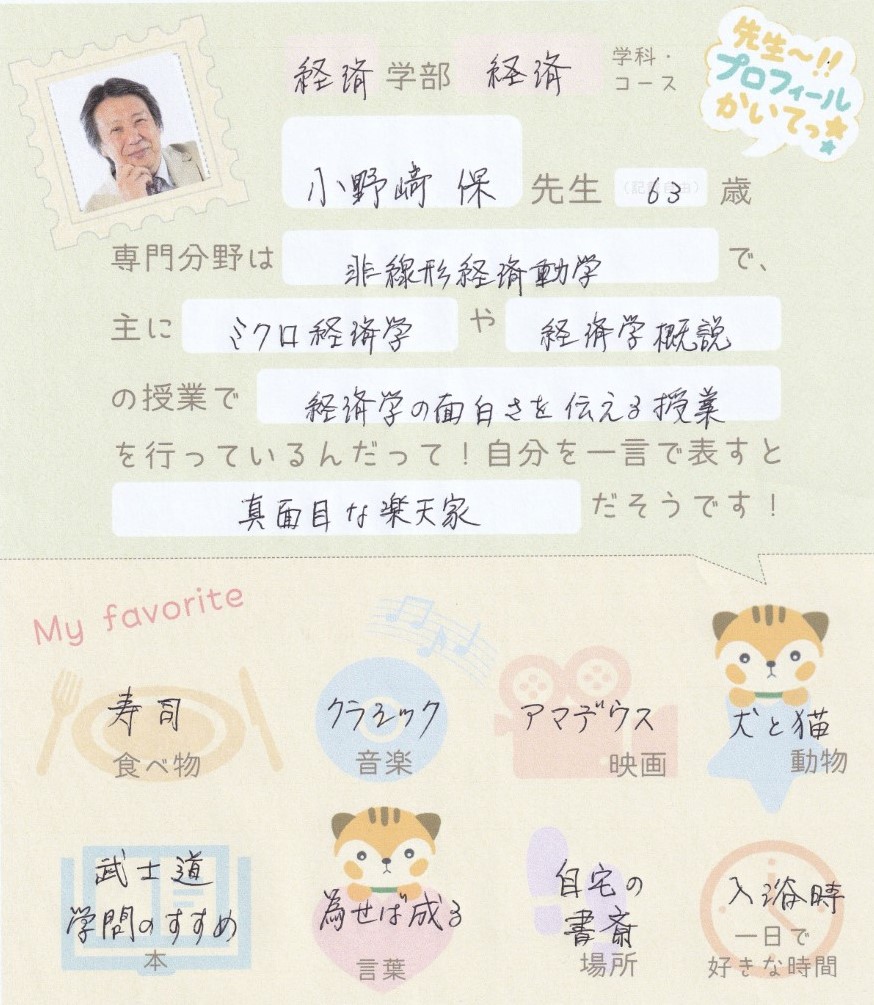 先生～!!
プロフィール
かいてっ★
経済 学部 経済 学科・コース
小野﨑 保 先生 63 歳
専門分野は 非線形経済動学 で、
主に ミクロ経済学 や 経済学概説
の授業で 経済学の面白さを伝える授業
を行っているんだって！自分を一言で表すと
真面目な楽天家 だそうです！
My favorite
寿司
食べ物
クラシック
音楽
アマデウス
映画
犬と猫
動物
武士道
学問のすすめ
本
為せば成る
言葉
自宅の
書斎
場所
入浴時
一日で
好きな時間